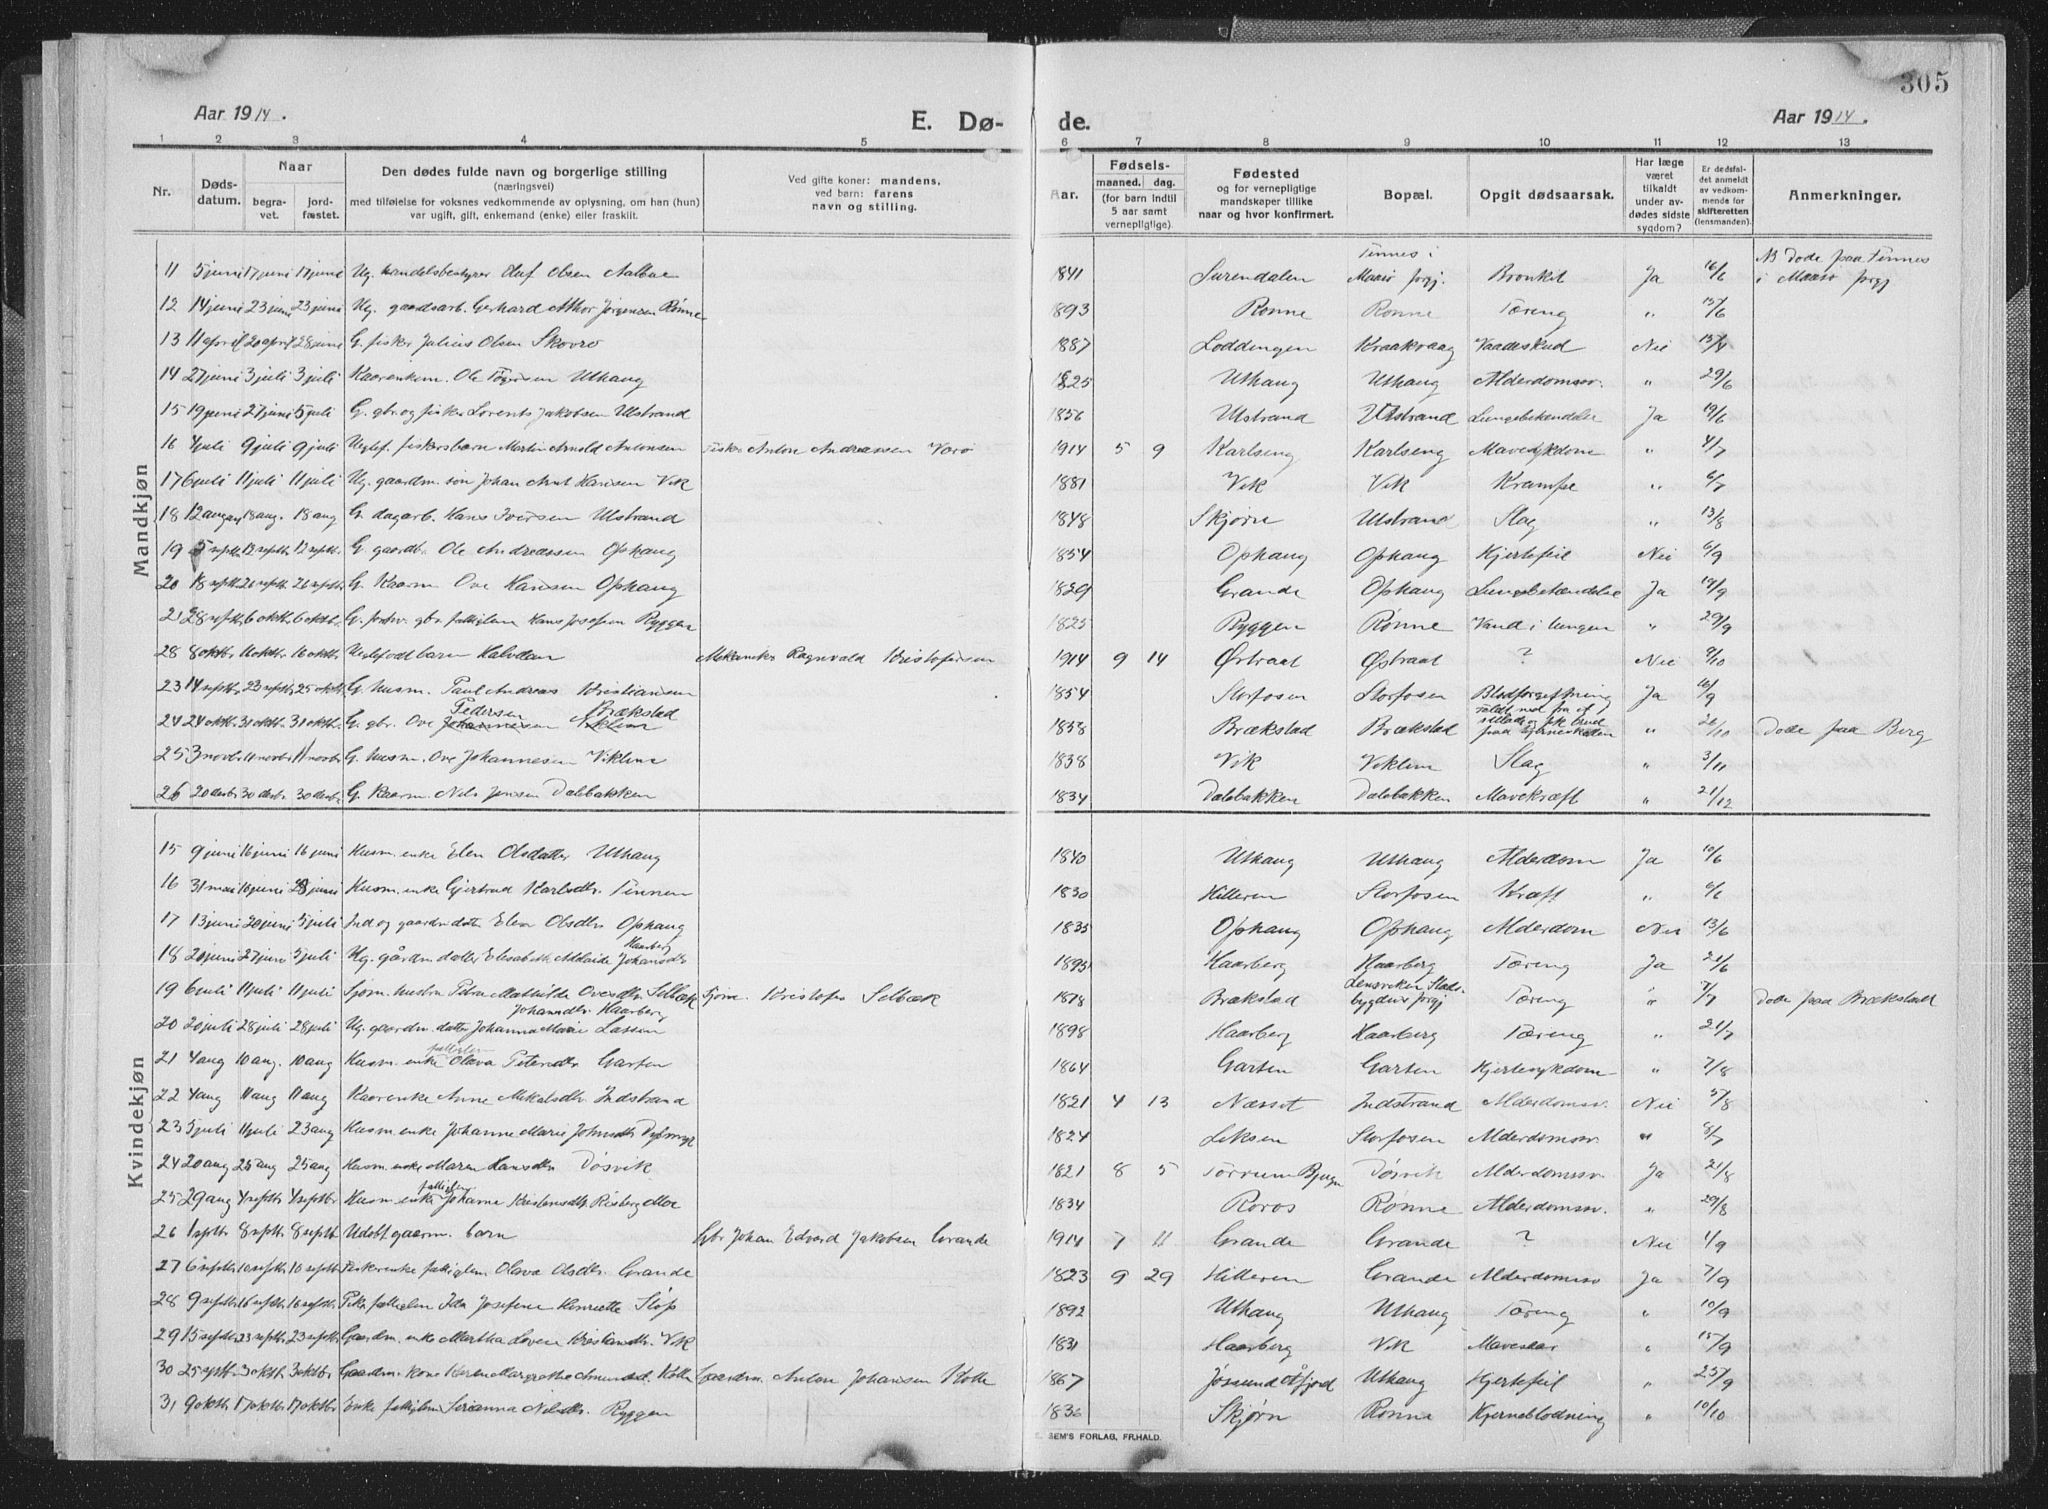 305
Aar 1914. E. Dø- de. Aar 1914.
1 2 3 4 5 6 7 8 9 10 11 12 13
Nr. Døds-datum. Naar begra-vet. jord-fæstet. Den dødes fulde navn og borgerlige stilling (næringsvei) med tilføielse for voksnes vedkommende av oplysning, om han (hun) var ugift, gift, enkemand (enke) eller fraskilt. Ved gifte koner: mandens, ved børn: farens navn og stilling. Aar. Fødsels- maaned. dag. (for børn indtil 5 aar samt vernepligtige). Fødested og for vernepligtige mandskaper tillike naar og hvor konfirmert. Bopæl. Opgit dødsaarsak. Har læge været tilkaldt under av-dødes sidste sygdom? Er dødsfal-det anmeldt av vedkom-mende for skifteretten (lensmanden). Anmerkninger.
Mandkjøn
11 5 juni 17 juni 17 juni Ug. handelsbestyrer Oluf Olsen Aalbue 1841 Surendalen Finnes i Maasø prgj. Bronkit Ja 16/6 NB Døde paa Finnes i Maasø prgj
12 14 juni 23 juni 23 juni Ug. gaardsarb. Gerhard Athor Jørgensen Rønne 1893 Rønne Rønne Tæring " 15/6
13 11 april 20 april 28 juni G. fisker Julius Olsen Skovro 1887 Loddingen Kraakvaag Vaadeskud Nei 13/4
14 27 juni 3 juli 3 juli Kaarenkem. Ole Uthaug 1825 Uthaug Uthaug Alderdomssv. " 29/6
15 19 juni 27 juni 5 juli G. gbr. og fisker Lorents Jakobsen Ulstrand 1856 Ulstrand Ulstrand Lungebetændelse Ja 19/6
16 4 juli 9 juli 9 juli Uegtef. fiskersbarn Martin Arnold Antonsen Fisker Anton Andreassen Værø 1914 5 9 Karlseng Karlseng Mavesykdom " 4/7
17 6 juli 11 juli 11 juli Ug. gaardm. søn Johan Arnt Hansen Vik 1881 Vik Vik Krampe " 6/7
18 12 august 18 aug. 18 aug G. dagarb. Hans Iversen Ulstrand 1848 Skjørn Ulstrand Slag " 13/8
19 5 septbr 12 septbr. 12 septbr. G. gaardbr. Ole Andreassen Ophaug 1854 Ophaug Ophaug Hjertefeil Nei 6/9
20 18 septbr. 26 septbr. 26 septbr. G. Kaarm Ove Hansen Ophaug 1829 Grande Ophaug Lungebetændelse Ja 19/9
21 28 septbr. 6 oktbr. 6 oktbr. G. gbr. fattiglem Hans Josefsen Ryggen 1825 Ryggen Rønne Vand i lungen " 29/9
28 8 oktbr 16 oktbr. 16 oktbr. Uegtefødt barn Halvdan Mekaniker Ragnvald Kristofersen 1914 9 14 Østraat Østraat ? Nei 9/10
23 14 septbr. 23 septbr. 25 oktbr. G. husm. Paul Andreas Kristiansen 1854 Storfosen Storfosen Blodforgiftning Ja 16/9
24 24 oktbr. 31 oktbr. 31 oktbr. G. gbr. Ove Johannesen Pedersen Viklem Brækstad 1858 Brækstad Brækstad Faldt ned fra et stillads og fik brud paa hjerneskallen " 26/10 Døde paa Borg
25 3 novbr 11 novbr 11 novbr G. husm. Ove Johannesen Viklem 1838 Vik Viklem Slag " 3/11
26 20 desbr 30 desbr. 30 desbr. G. Kaarm. Nils Jensen Dalebakken 1834 Dalebakken Dalebakken Mavekræft " 21/12
Kvindekjøn
15 9 juni 16 juni 16 juni Husm. enke Elen Olsdatter Uthaug 1840 Uthaug Uthaug Alderdom Ja 10/6
16 31 mai 10 juni 28 juni Husm. enke Gjertrud Karlsdtr. Finnen 1830 Hitteren Storfosen Kræft " 6/6
17 13 juni 20 juni 5 juli Ind og gaardm datter Elen Olsdtr. Ophaug 1835 Ophaug Ophaug Alderdom Nei 13/6
18 20 juni 27 juni 5 juli Ug. gårdm. datter Elisabeth Adelaide Johansdtr Haarberg 1893 Haarberg Haarberg Tæring Ja 21/6
19 6 juli 11 juli 11 juli Sjøm. hustru Petra Mathilde Ovesdtr. Selbæk Sjøm. Kristofer Selbæk 1878 Brækstad Lensviken Stads-bygdens prgj Tæring " 7/7 Døde paa Brækstad
20 20 juli 28 juli 28 juli Ug. gaardm. datter Johanna Marie Lassen Johannsdtr. Haarberg 1898 Haarberg Haarberg Tæring " 21/7
21 4 aug 10 aug. 10 aug Husm. enke fattiglem Olava Petersdtr. Garten 1864 Garten Garten Hjertesykdom " 7/8
22 4 aug 11 aug 11 aug Kaarenke Anne Mikalsdtr. Indstrand 1821 4 13 Næsset Indstrand Alderdomssv. Nei 5/8
23 5 juli 11 juli 23 aug Husm. enke Johanne Marie Johnsdtr. 1824 Leksen Storfosen Alderdomssv. " 8/7
24 20 aug 25 aug 25 aug Husm. enke Maren Hansdtr. Døsvik 1821 8 5 Bjugn Døsvik Alderdomssv. Ja 21/8
25 29 aug 4 septbr 4 septbr Husm. enke fattiglem Johanna Kristensdtr. Risberg Moe 1834 Røros Rønne Alderdomssv. " 29/8
26 1 septbr 8 septbr 8 septbr Udøbt gaarm. barn Gbr Johan Edvard Jakobsen Grande 1914 7 11 Grande Grande ? Nei 4/9
27 6 septbr. 10 septbr. 10 septbr. Fiskerenke fattiglem Olava Olsdtr. Grande 1823 9 29 Hitteren Grande Alderdomssv Ja 7/9
28 9 septbr. 16 septbr. 16 septbr. Pike fattiglem Ida Josefine Henriette Sløp 1892 Uthaug Uthaug Tæring " 10/9
29 15 septbr. 23 septbr. 23 septbr. Gaardm. enke Martha Lovise Kristiansdtr. Vik 1831 Haarberg Vik " 15/9
30 25 septbr. 3 oktbr. 3 oktbr. Gaardm. kone Karen Margrethe Amundsd. Kotte Gaardm. Anton Johansen Kotte 1867 Jøssund Åfjord Uthaug Hjertefeil " 25/9
31 9 oktbr 17 oktbr 17 oktbr Enke fattiglem Serianna Nilsdtr. Ryggen 1836 Skjørn Rønne Hjerneblødning " 10/10
SEM'S FORLAG, FR.HALD.